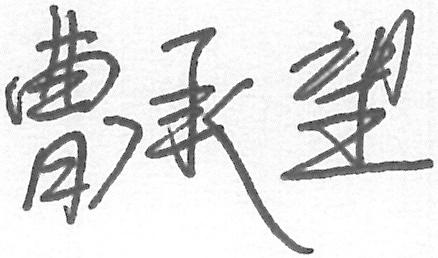 曹承望